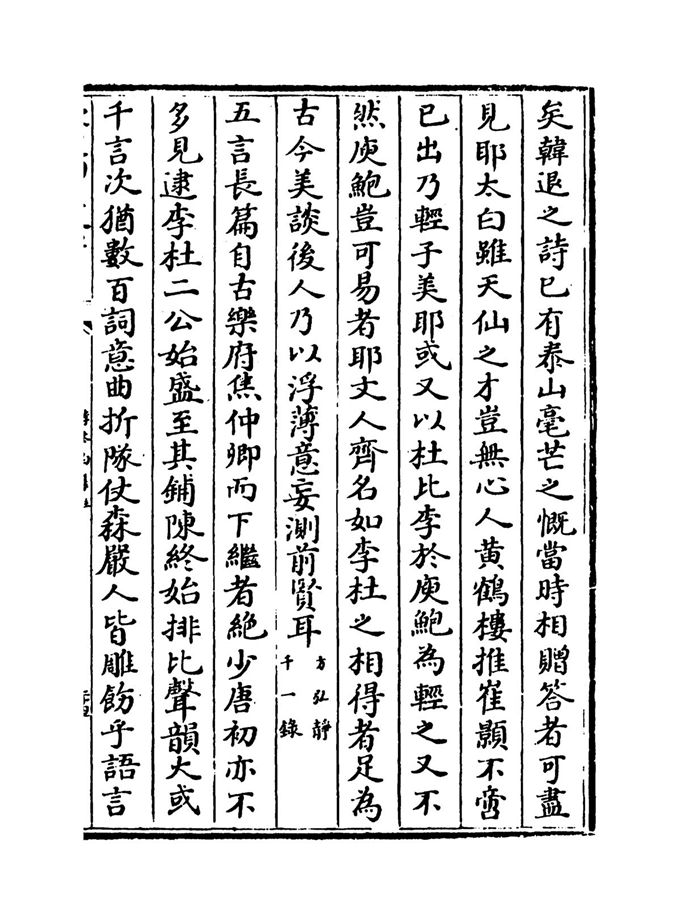 矣韓退之詩已有泰山毫芒之慨當時相贈答者可盡
見耶太白雖天仙之才豈無心人黃鶴樓推崔顥不啻
已出乃輕子美耶或又以杜比李於庾鮑為輕之又不
然庾鮑豈可易者耶文人齊名如李杜之相得者足為
古今美談後人乃以浮薄意妄測前賢耳方弘靜千一錄
五言長篇自古樂府焦仲卿而下繼者絶少唐初亦不
多見逮李杜二公始盛至其鋪陳終始排比聲韻大或
千言次猶數百詞意曲折隊仗森嚴人皆雕飾乎語言